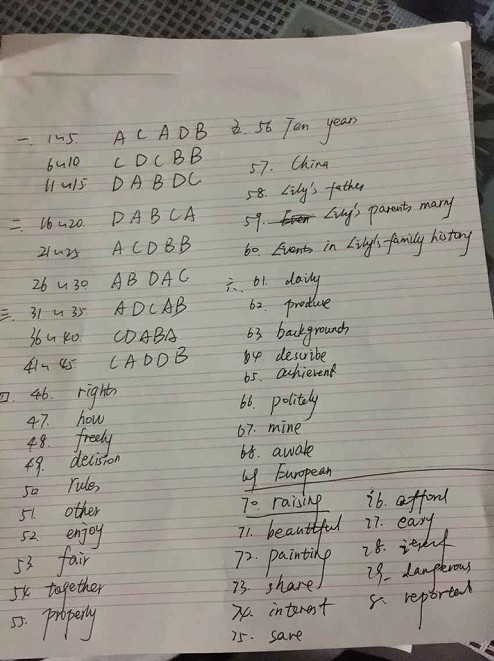 一. 1~5 A C A D B
6~10 C D C B B
11~15 D A B D C
二. 16~20. D A B C A
21~25 A C D B B
26~30 A B D A C
三. 31~35 A D C A B
36~40. C D A B A
41~45. C A D D B
四. 46. rights
47. how
48. freely
49. decision
50 rules
51. other
52 enjoy
53 fair
54. together
55. properly
五 56 Ten years
57. China
58. Lily's father
59. Lily's parents marry
60. Events in Lily's family history
六. 61. daily
62. produce
63. backgrounds
64. describe
65. achievent
66. politely
67. mine
68. awake
69 European
70. raising
71. beautiful
72. painting
73. share
74. interest
75. save
76. afford
77. easy
78. itself
79. dangerous
8. reported